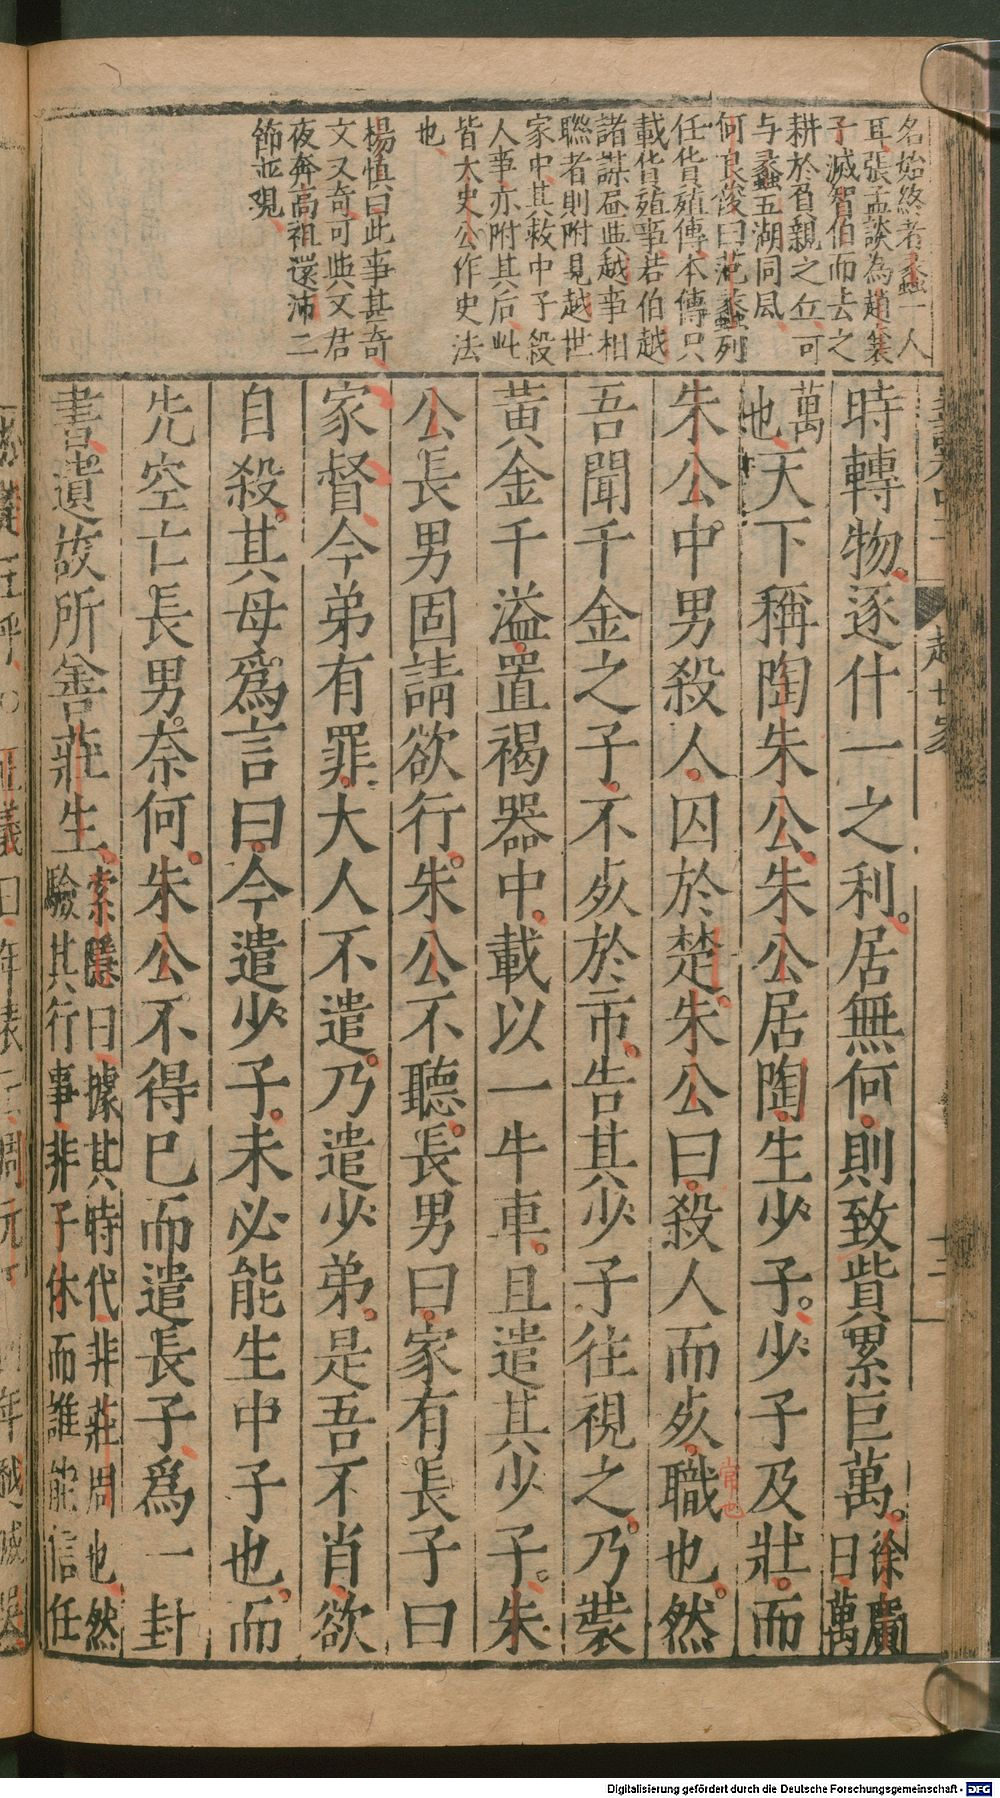 名始終者蠡一人
耳張孟談為趙襄
子滅智伯而去之
耕於負親之丘可
与蠡五湖同風
何良俊曰范蠡列
任貨殖傳本傳只
載貨殖事若伯越
諸謀屆與越事相
聮者則附見越世
家中其救中子殺
人事亦附其后此
皆太史公作史法
也
楊慎曰此事甚奇
文又奇可與文君
夜奔高祖還沛二
節並觀
時轉物逐什一之利居無何則致貲累巨萬徐廣曰萬
萬也天下稱陶朱公朱公居陶生少子少子及壯而
朱公中男殺人囚於楚朱公曰殺人而死職也然
常也
吾聞千金之子不死於市告其少子往視之乃裝
黃金千溢置褐器中載以一牛車且遣其少子朱
公長男固請欲行朱公不聽長男曰家有長子曰
家督今弟有罪大人不遣乃遣少弟是吾不肖欲
自殺其母為言曰今遣少子未必能生中子也而
先空亡長男奈何朱公不得已而遣長子為一封
書遺故所善莊生索隱曰據其時代非莊周也然驗其行事非子休而誰能信任
越世家
十二
Digitalisierung gefördert durch die Deutsche Forschungsgemeinschaft - DFG